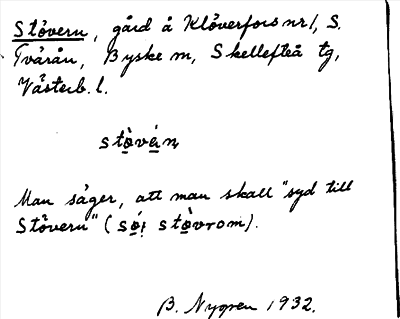 Stövern, gård å Klöverfors nr 1, S.
Tvärån, Byske m, Skellefteå tg,
Västerb. l.
Man säger, att man skall "syd till
Stövern" (
B. Nygren 1932.